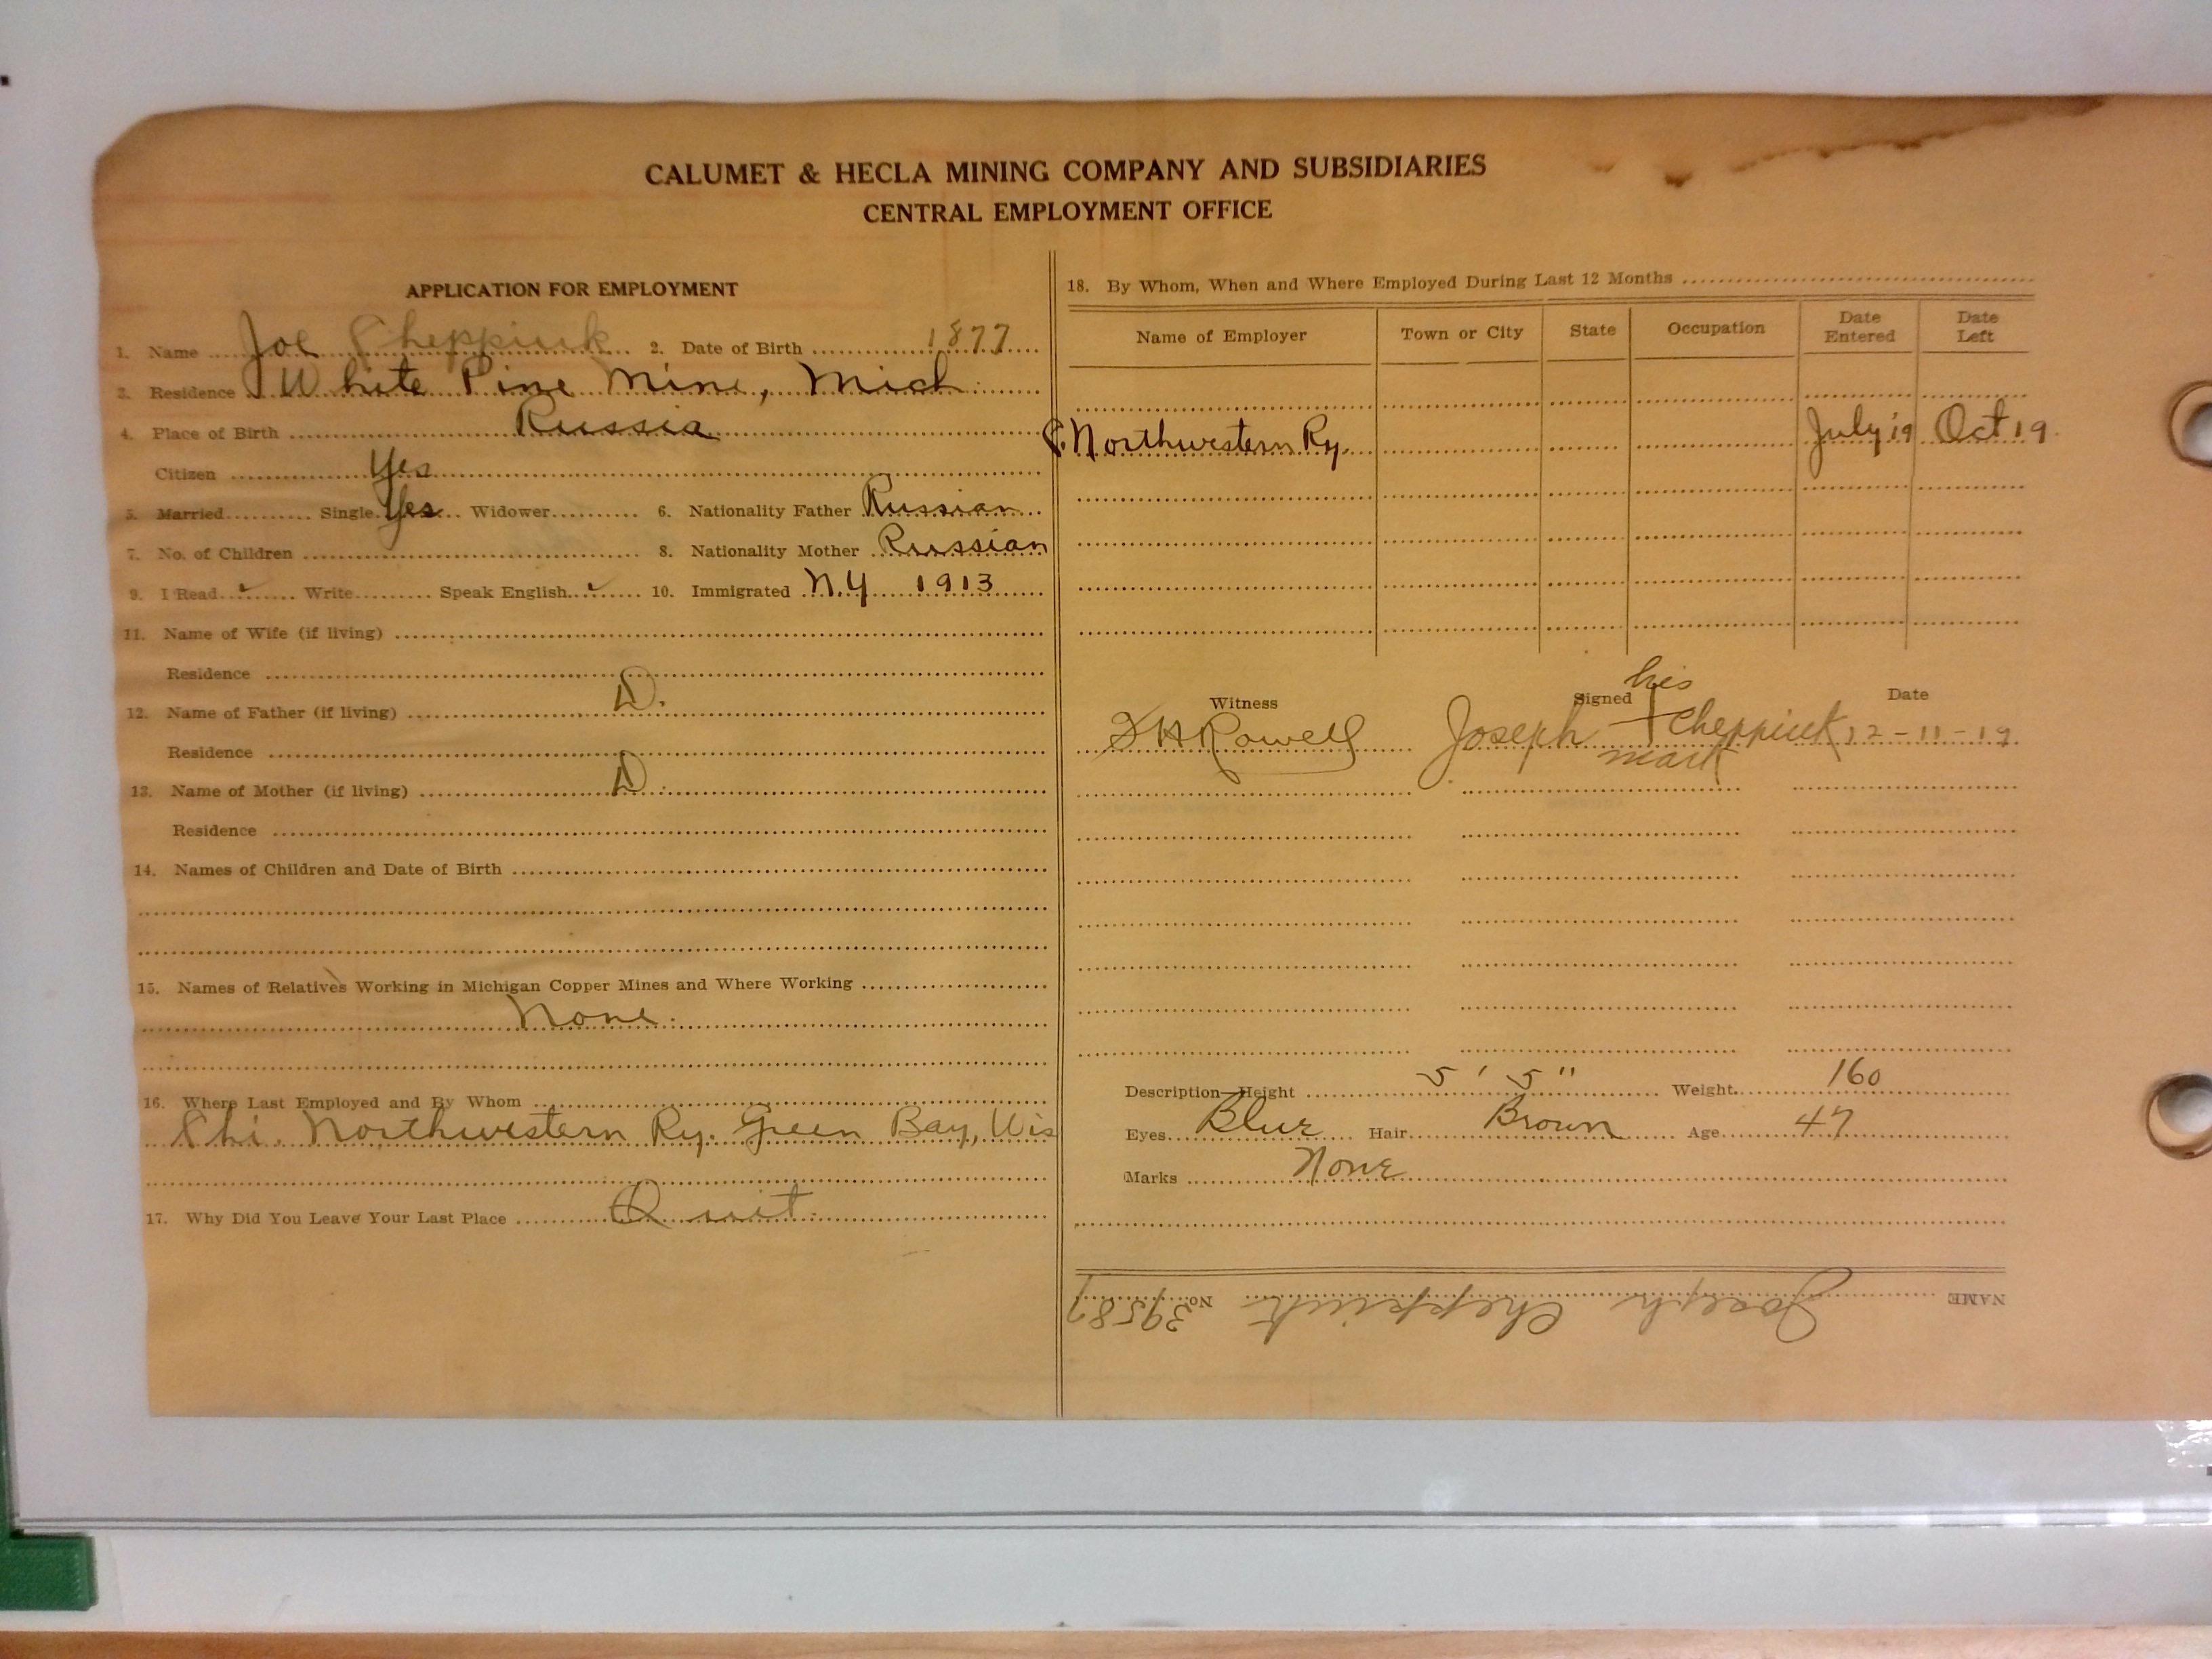 CALUMET & HECLA MINING COMPANY AND SUBSIDIARIES
CENTRAL EMPLOYMENT OFFICE
APPLICATION FOR EMPLOYMENT
1. Name Joe Cheppiuk 2. Date of Birth 1877
3. Residence White Pine Mine, Mich.
4. Place of Birth Russia
Citizen Yes
5. Married Single Yes Widower 6. Nationality Father Russian
7. No. of Children 8. Nationality Mother Russian
9. I Read ✓ Write Speak English ✓ 10. Immigrated N.Y 1913
11. Name of Wife (if living)
Residence
12. Name of Father (if living) D.
Residence
13. Name of Mother (if living) D.
Residence
14. Names of Children and Date of Birth
15. Names of Relatives Working in Michigan Copper Mines and Where Working
None.
16. Where Last Employed and By Whom
Chi. Northwestern Ry. Green Bay, Wis
17. Why Did You Leave Your Last Place Quit.
18. By Whom, When and Where Employed During Last 12 Months
Name of Employer Town or City State Occupation Date Entered Date Left
C. Northwestern Ry. July 19 Oct 19
Witness Signed Date
his
Joseph + Cheppiuk 12-11-19
mark
Rowell
Description—Height 5' 5" Weight 160
Eyes Blue Hair Brown Age 47
Marks None
NAME Joseph Cheppiuk No. 39587